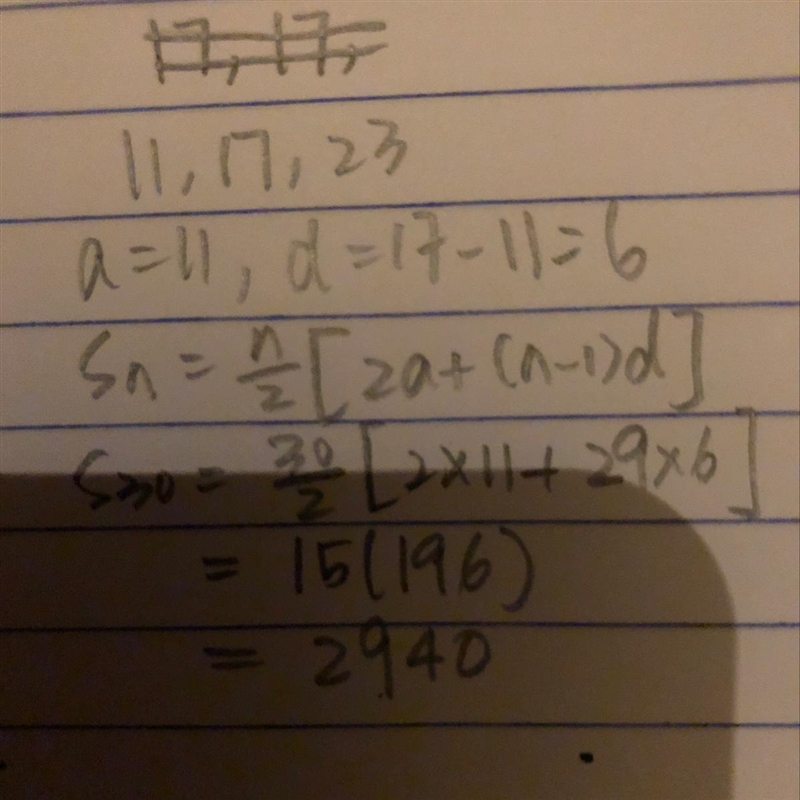 17, 17,
11, 17, 23
a = 11, d = 17 - 11 = 6
Sn = n/2 [2a + (n-1)d]
S30 = 30/2 [2×11 + 29×6]
= 15(196)
= 2940